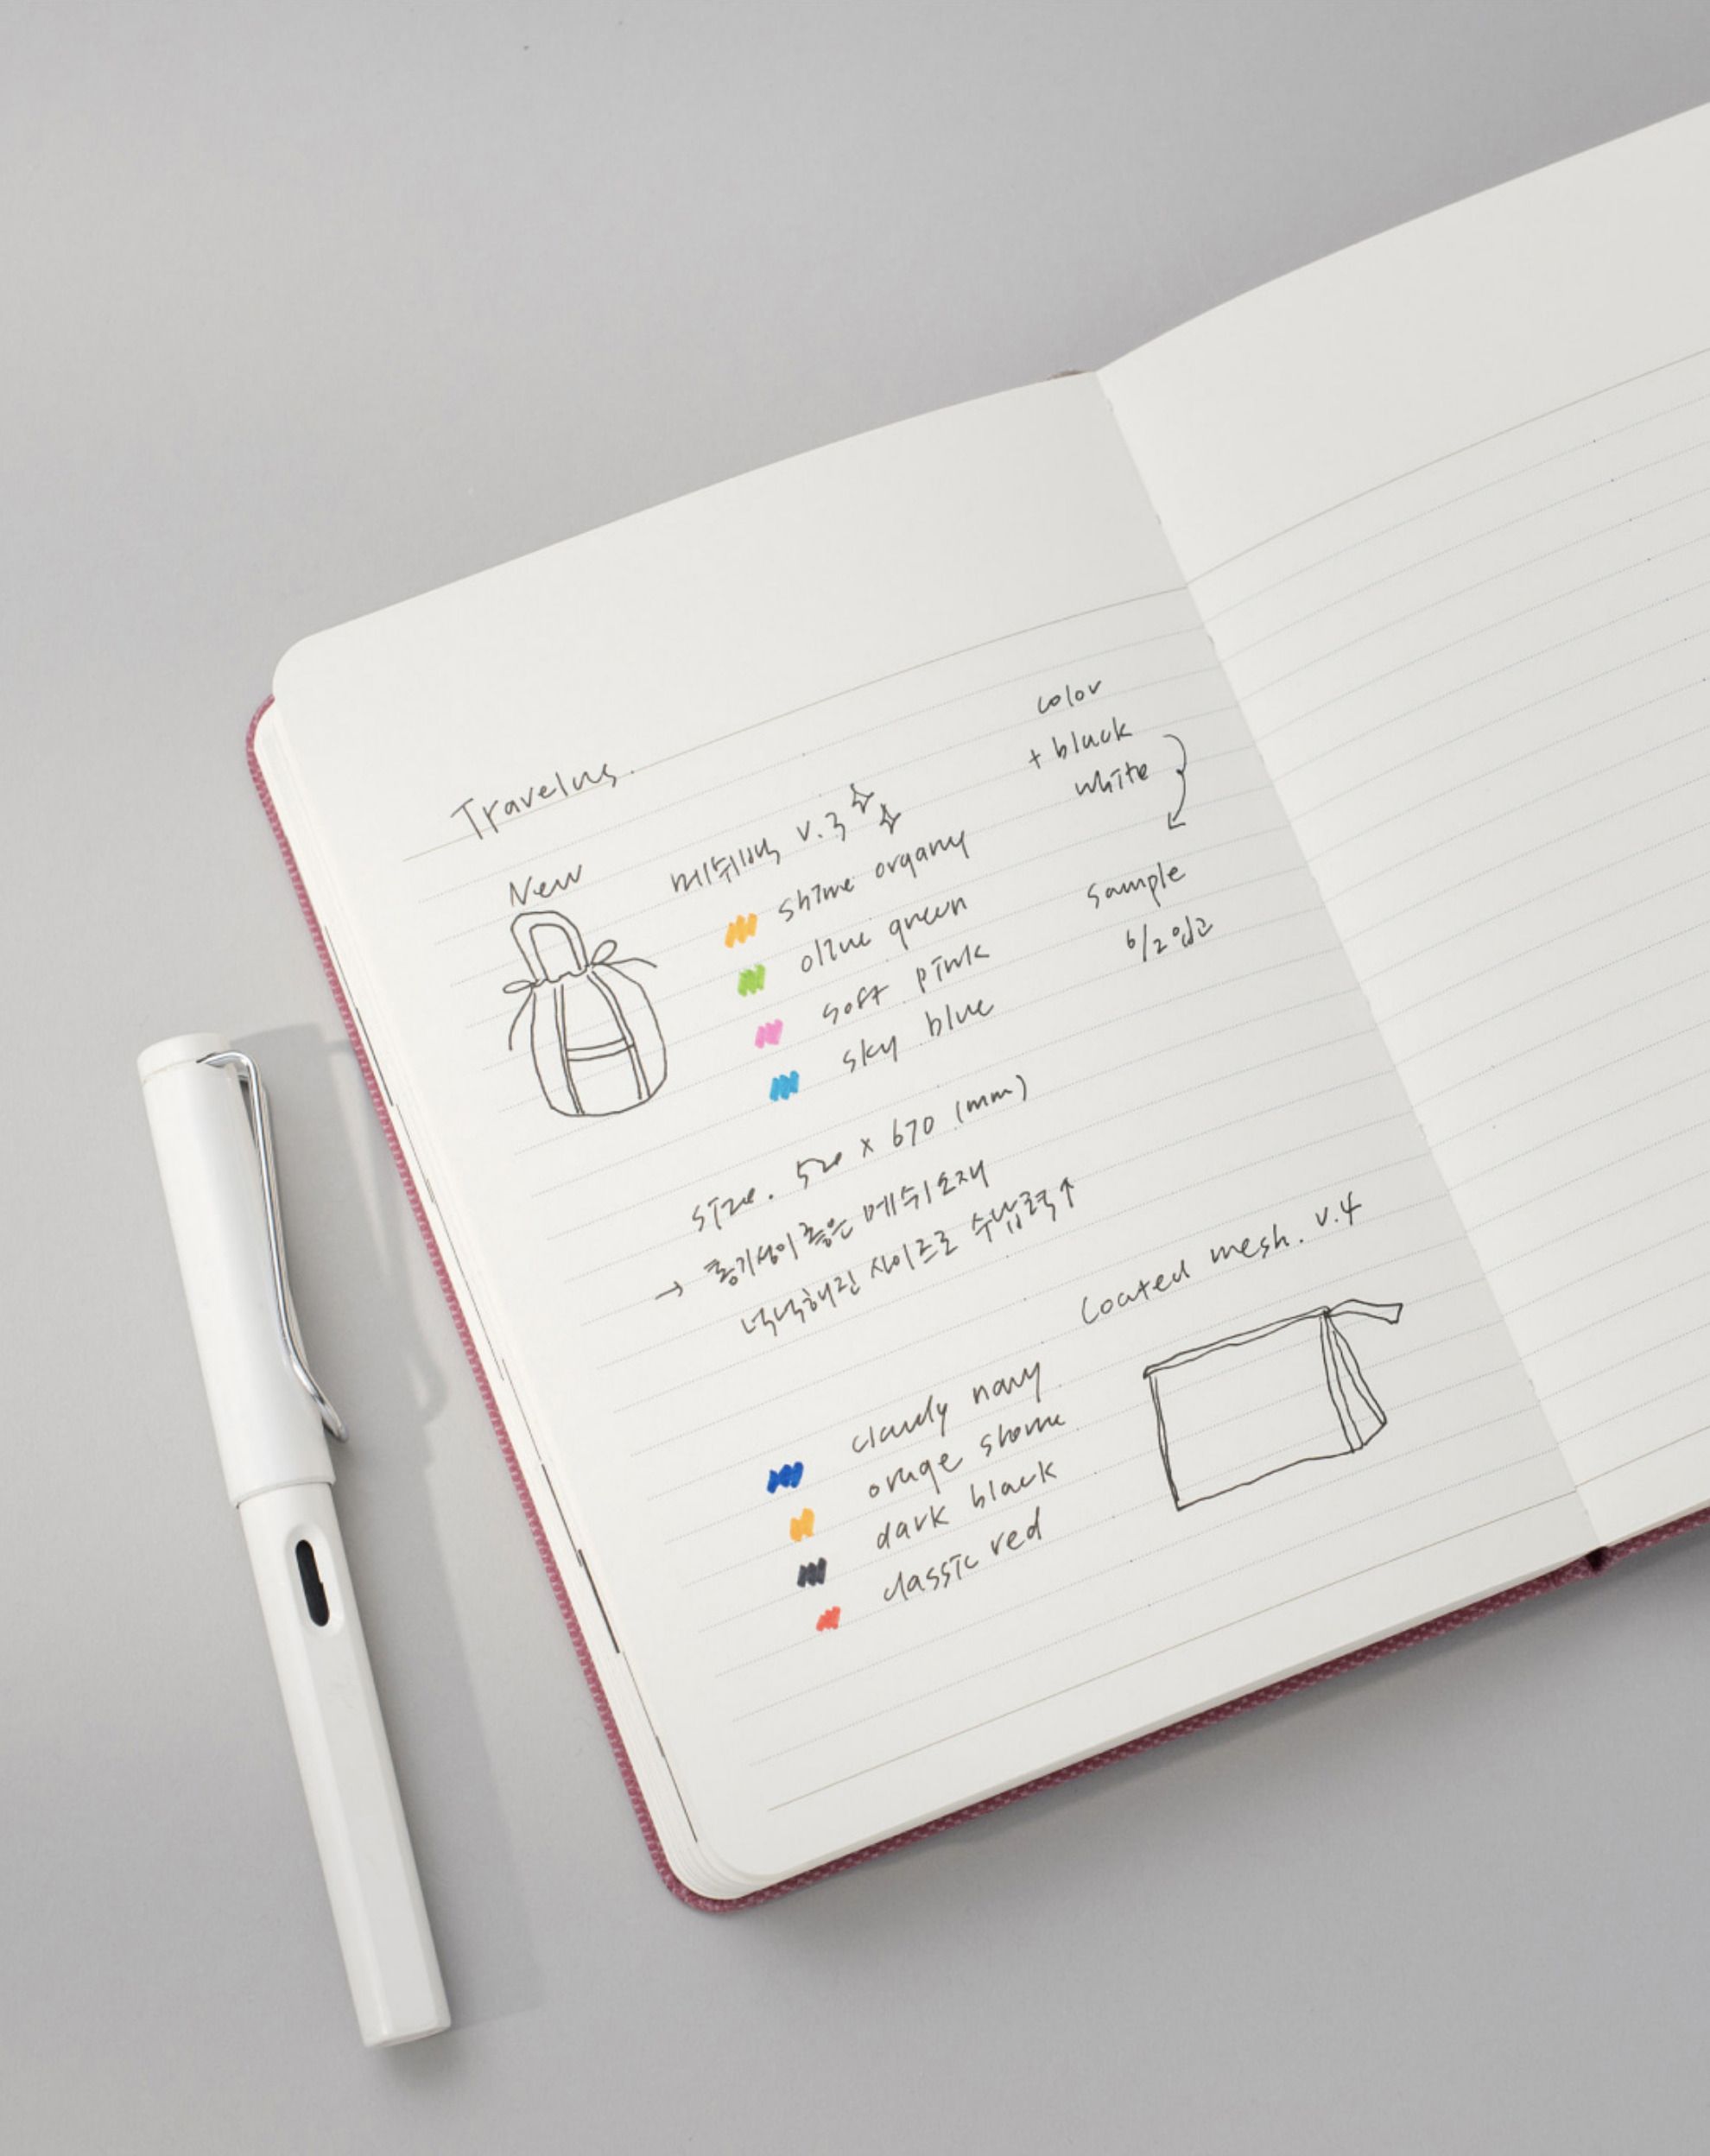 Travelus.
New
메쉬백 v.3
color
+ black
white
shine organy
olive green
soft pink
sky blue
sample
6/2 입고
size. 520 x 670 (mm)
→ 통기성이 좋은 메쉬 소재
넉넉해진 사이즈로 수납력↑
Coated mesh. v.4
navy
orage
dark black
classic red